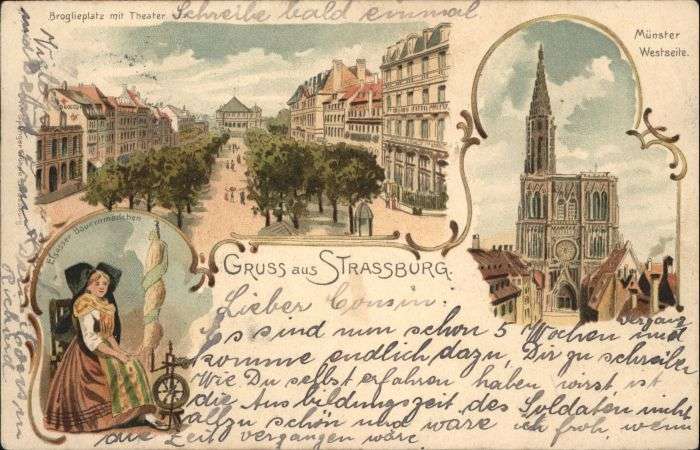 Broglieplatz mit Theater
Schreibe bald einmal
Münster
Westseite.
Elsässer Bauernmädchen
GRUSS aus STRASSBURG.
Lieber Cousin!
Es sind nun schon 5 Wochen vergan
und
komme endlich dazu, Dir zu schreiben
Wie Du selbst erfahren haben wirst ist
die Ausbildungszeit des Soldaten nicht
allzu schön und wäre ich froh, wenn
die Zeit vergangen wäre
Viele
und
Cousin
Richard